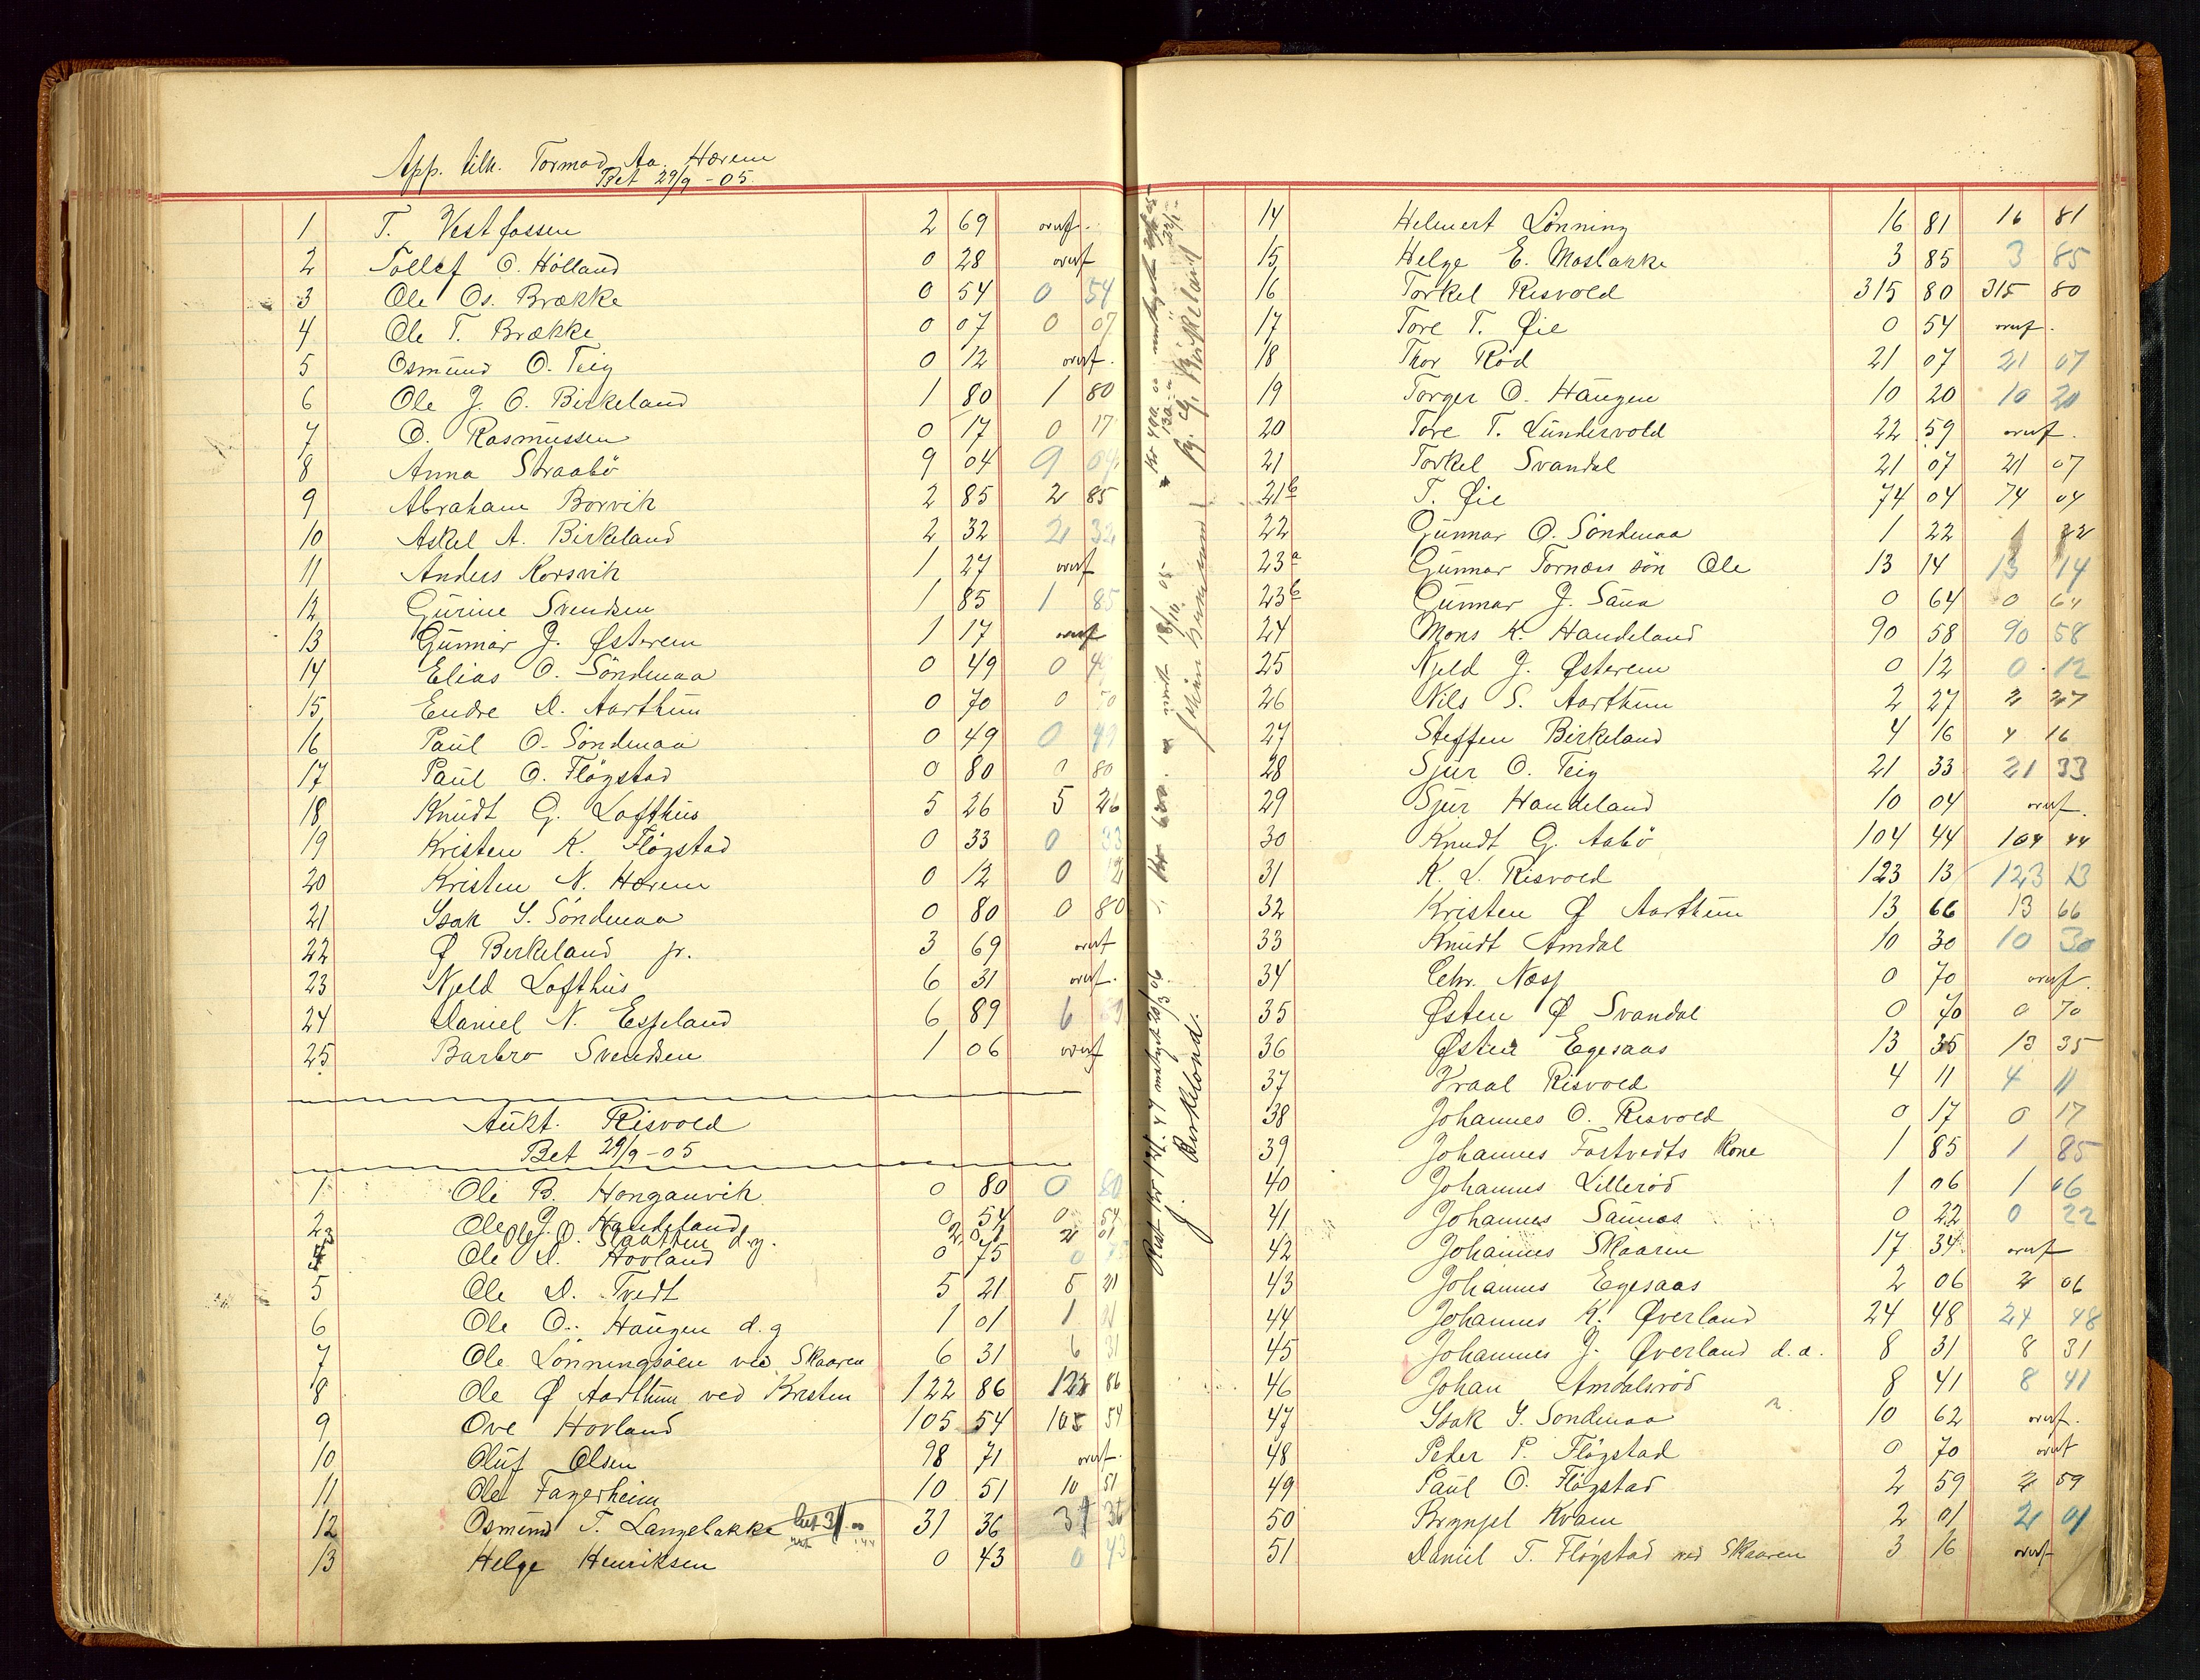 App. tilh. Tormod Aa. Hærem
Bet 29/9 - 05.
1 T. Vestfossen 2 69 overf.
2 Tollef O. Hölland 0 28 overf
3 Ole Os. Brække 0 54 0 54
4 Ole T. Brække 0 07 0 07
5 Osmund O. Teig 0 12 overf.
6 Ole J. O. Birkeland 1 80 1 80
7 O. Rasmussen 0 17 0 17
8 Anna Straabö 9 04 9 04
9 Abraham Borvik 2 85 2 85
10 Askel A. Birkeland 2 32 2 32
11 Anders Korsvik 1 27 overf
12 Gurine Svendsen 1 85 1 85
13 Gunnar J. Østerem 1 17 overf
14 Elias O. Söndenaa 0 49 0 4
15 Endre D. Aarthun 0 70 0 70
16 Paul O. Söndenaa 0 49 0 49
17 Paul O. Flögstad 0 80 0 80
18 Knudt G. Lofthus 5 26 5 26
19 Kristen K. Flögstad 0 33 0 33
20 Kristen N. Hærem 0 12 0 12
21 Isak I. Söndenaa 0 80 0 80
22 Ø Birkeland jr. 3 69 overf
23 Njeld Lofthus 6 31 overf.
24 Daniel N. Espeland 6 89 6 89
25 Barbro Svendsen 1 06 overf
Aukt. Risvold
Bet 29/9 - 05
1 Ole B. Honganvik 0 80 0 80
2 Ole J. Handeland 0 54 0 54
3 Ole J. O. Slaatten d.y. 2 01 2 01
4 Ole D. Hovland 0 75 0
5 Ole D. Tvedt 5 21 5 21
6 Ole O. Haugen d.y 1 01 1 01
7 Ole Lönningsöen ved Skaaren 6 31 6 31
8 Ole Ø Aarthun ved Kristen 122 86 122 86
9 Ove Hovland 105 54 105 54
10 Oluf Olsen 98 71 overf.
11 Ole Fagerheim 10 51 10 51
12 Osmund T. Langelakke 31 36 31 36
13 Helge Henriksen 0 43 0 43
J. Birkeland.
14 Helmert Lönning 16 81 16 81
15 Helge E. Moslakke 3 85 3 85
16 Torkel Risvold 315 80 315 80
17 Tore T. Øie 0 54 overf.
18 Thor Röd 21 07 21 07
19 Torger O. Haugen 10 20 10 20
20 Tore T. Lundervold 22 59 overf.
21 Torkel Svandal 21 07 21 07
21b T. Øie 74 04 74 04
22 Gunnar O. Söndenaa 1 22 1 22
23a Gunnar Tornæs sön Ole 13 14 13 14
23b Gunnar J. Sana 0 64 0 64
24 Mons K. Handeland 90 58 90 58
25 Njeld J. Østerem 0 12 0 12
26 Nils S. Aarthun 2 27 2 27
27 Steffen Birkeland 4 16 4 16
28 Sjur O. Teig 21 33 21 33
29 Sjur Handeland 10 04 overf.
30 Knudt G. Aabö 104 44 104 44
31 K. L. Risvold 123 13 123 13
32 Kristen Ø Aarthun 13 66 13 66
33 Knudt Amdal 10 30 10 30
34 Chr. Næss 0 70 overf.
35 Østen Ø Svandal 0 70 0 70
36 Østen Egesaas 13 35 13 35
37 Vraal Risvold 4 11 4 11
38 Johannes O. Risvold 0 17 0 17
39 Johannes Fartvedts Kone 1 85 1 85
40 Johannes Lilleröd 1 06 1 06
41 Johannes Saunes 0 22 0 22
42 Johannes Skaaren 17 34 overf
43 Johannes Egesaas 2 06 2 06
44 Johannes K. Øverland 24 48 24 48
45 Johannes J. Øverland d.a. 8 31 8 31
46 Johan Amdalsröd 8 41 8 41
47 Isak I. Söndenaa 10 62 overf.
48 Peder P. Flögstad 0 70 overf
49 Paul O. Flögstad 2 59 2 59
50 Brynjel Kvam 2 01 2 01
51 Daniel T. Flögstad ved Skaaren 3 16 overf